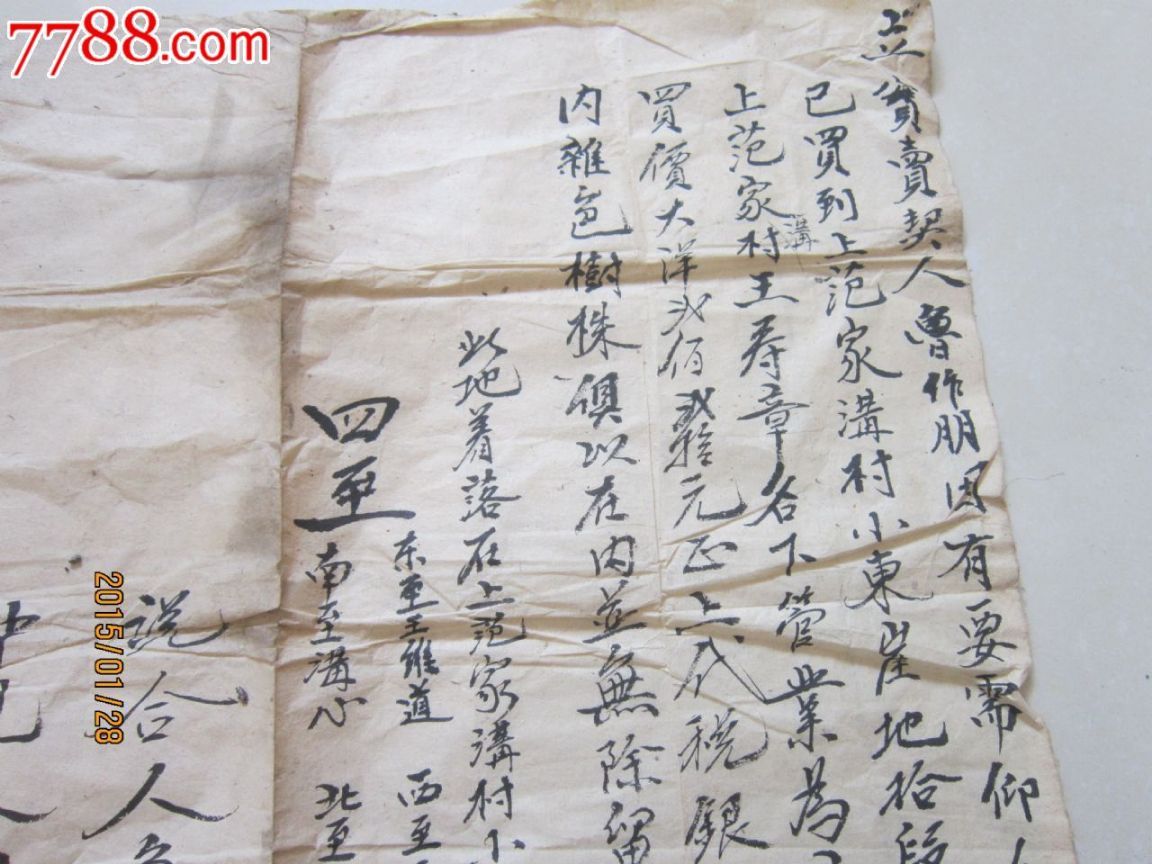 7788.com
立賣賣契人魯作朋因有要需仰
已買到上范家溝村小東崖地拾段
上范家溝村王寿章名下管業為
買價大洋弍佰弍拾元正上代税銀
内雜色樹株俱以在内並無除留
此地着落在上范家溝村小
四至
东至王維道 西至
南至溝心 北至
説合人
2015/01/28